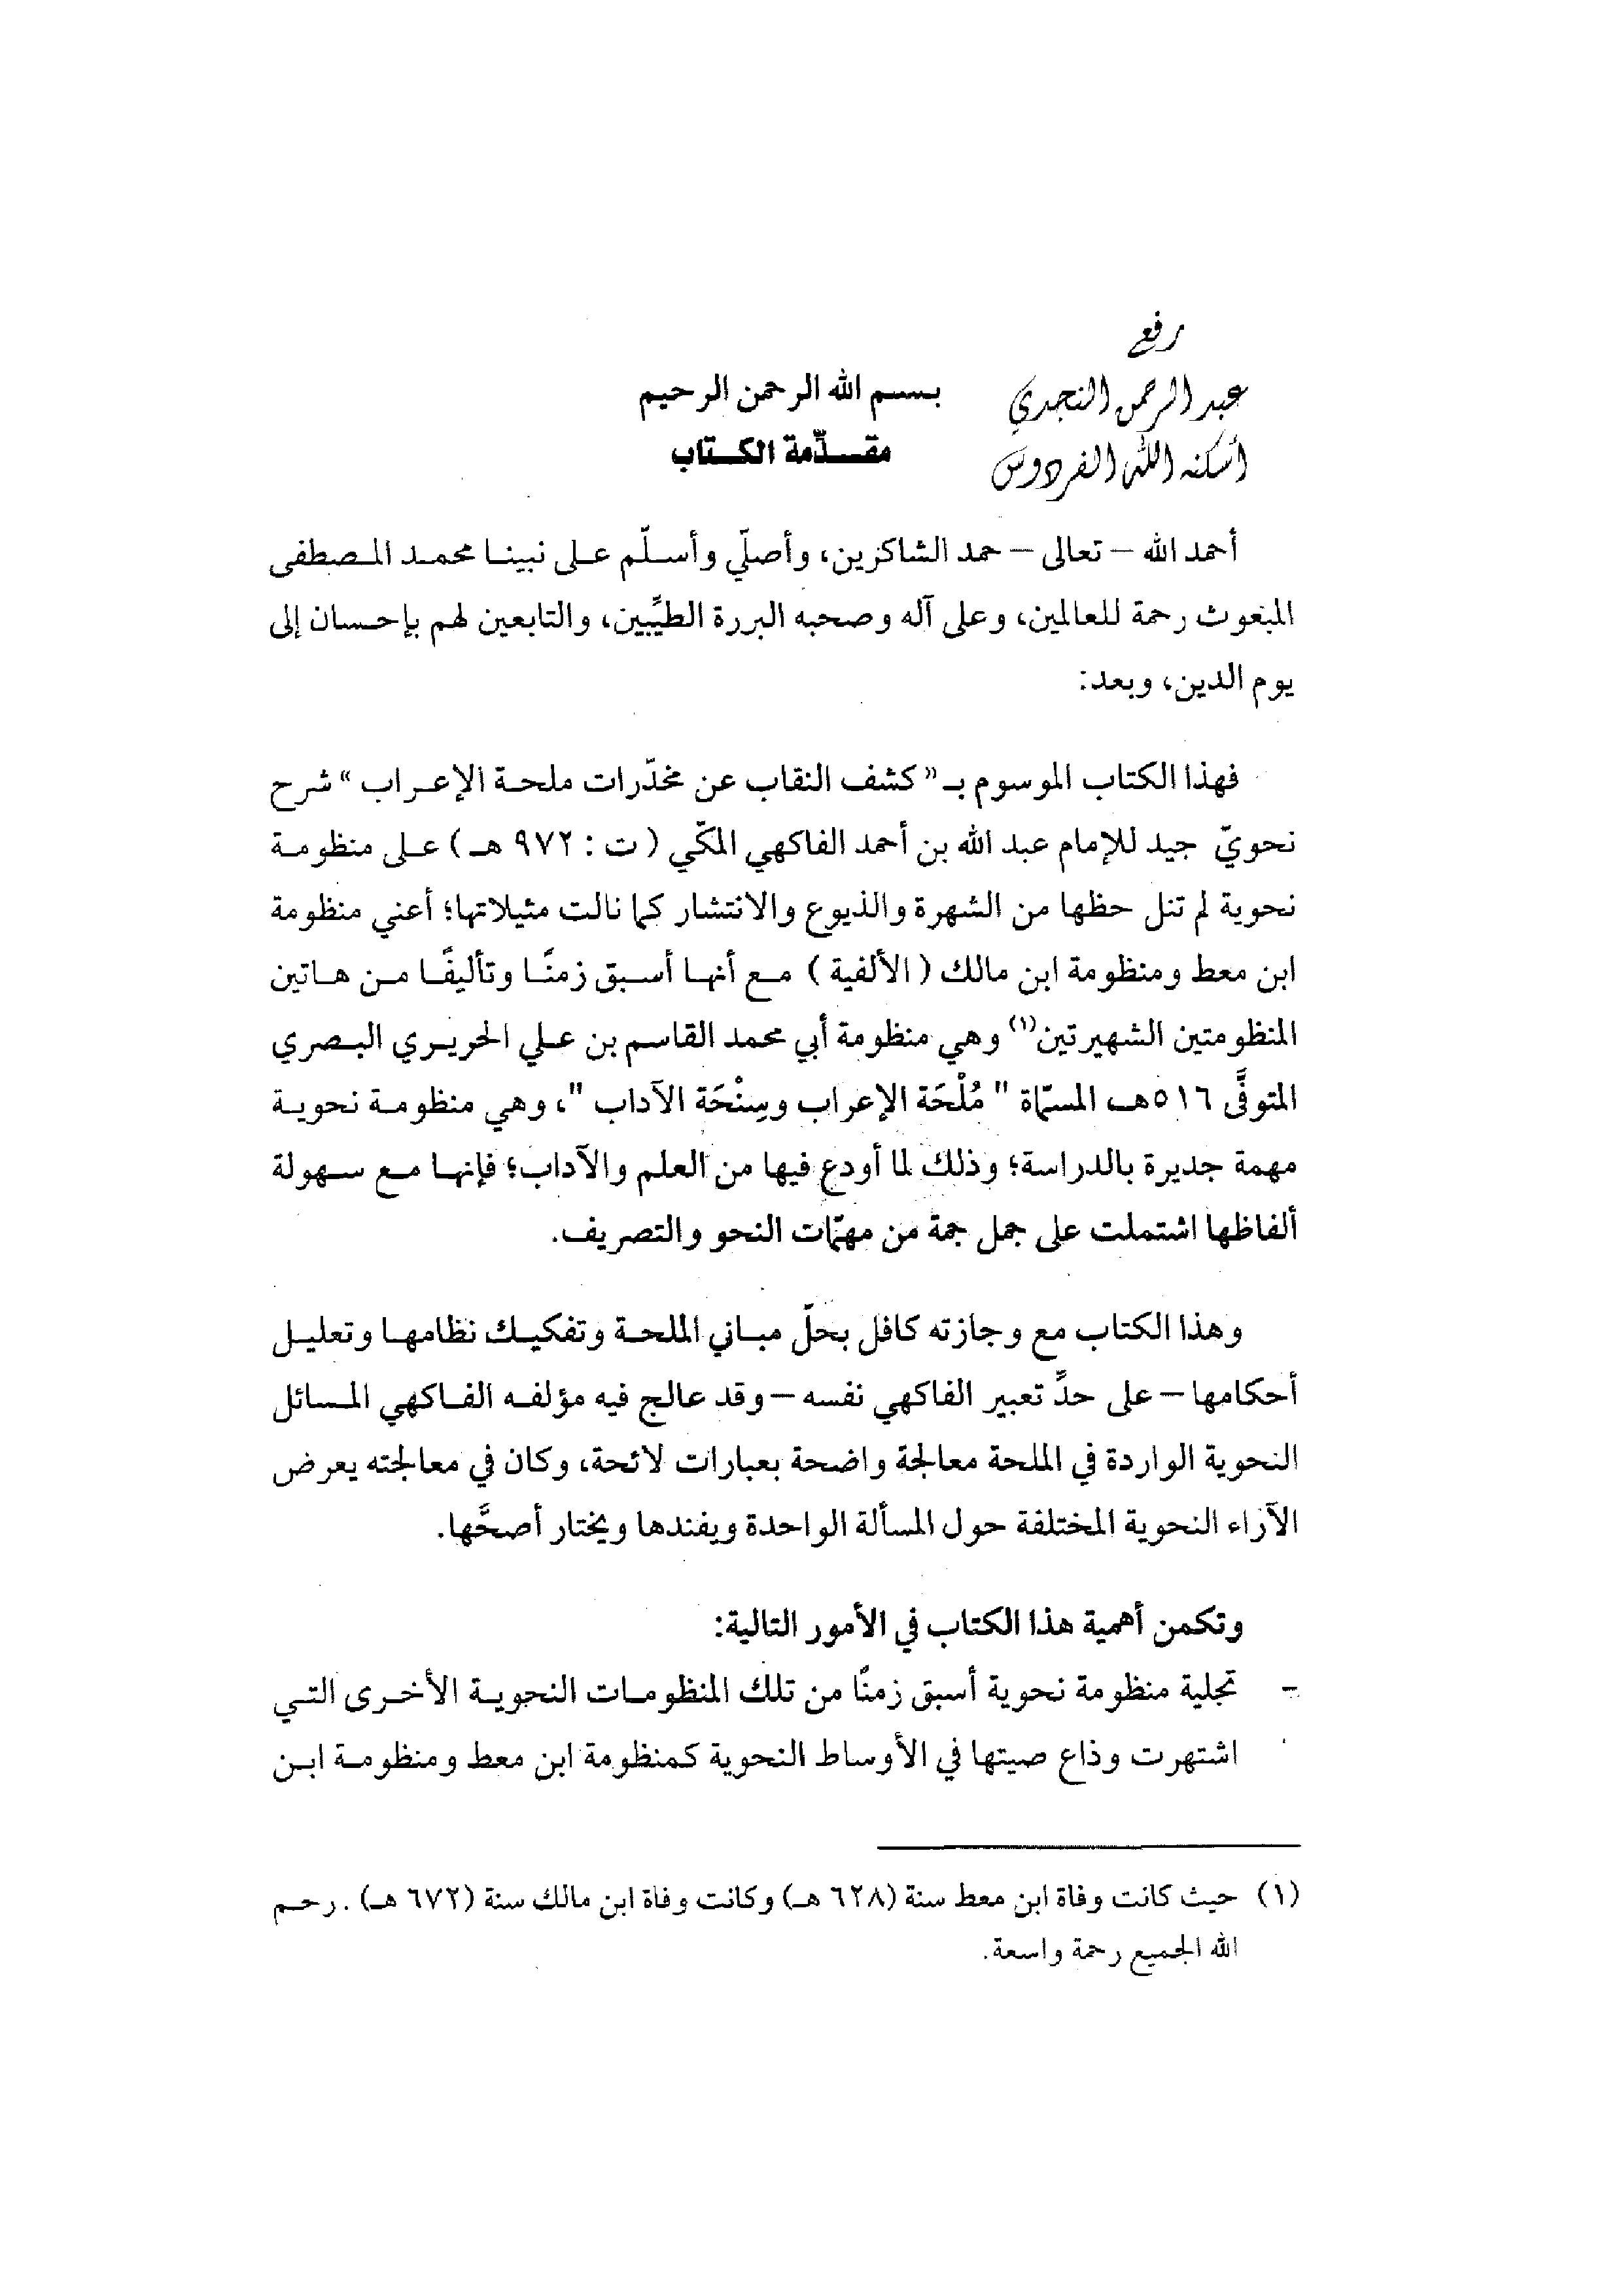 رفع
عبد الرحمن النجدي
أسكنه الله الفردوس
بسم الله الرحمن الرحيم
مقدّمة الكتاب
أحمد الله – تعالى – حمد الشاكرين، وأصلّي وأسلّم على نبينا محمد المصطفى
المبعوث رحمة للعالمين، وعلى آله وصحبه البررة الطيِّبين، والتابعين لهم بإحسان إلى
يوم الدين، وبعد:
فهذا الكتاب الموسوم بـ " كشف النقاب عن مخدّرات ملحة الإعراب " شرح
نحويّ جيد للإمام عبد الله بن أحمد الفاكهي المكّي ( ت : ٩٧٢ هـ ) على منظومة
نحوية لم تنل حظها من الشهرة والذيوع والانتشار كما نالت مثيلاتها؛ أعني منظومة
ابن معط ومنظومة ابن مالك ( الألفية ) مع أنها أسبق زمنًا وتأليفًا من هاتين
المنظومتين الشهيرتين(١) وهي منظومة أبي محمد القاسم بن علي الحريري البصري
المتوفَّى ٥١٦هـ المسمّاة " مُلْحَة الإعراب وسِنْحَة الآداب "، وهي منظومة نحوية
مهمة جديرة بالدراسة؛ وذلك لما أودع فيها من العلم والآداب؛ فإنها مع سهولة
ألفاظها اشتملت على جمل جمة من مهمّات النحو والتصريف.
وهذا الكتاب مع وجازته كافل بحلّ مباني الملحة وتفكيك نظامها وتعليل
أحكامها – على حدِّ تعبير الفاكهي نفسه – وقد عالج فيه مؤلفه الفاكهي المسائل
النحوية الواردة في الملحة معالجة واضحة بعبارات لائحة، وكان في معالجته يعرض
الآراء النحوية المختلفة حول المسألة الواحدة ويفندها ويختار أصحَّها.
وتكمن أهمية هذا الكتاب في الأمور التالية:
- تجلية منظومة نحوية أسبق زمنًا من تلك المنظومات النحوية الأخرى التي
اشتهرت وذاع صيتها في الأوساط النحوية كمنظومة ابن معط ومنظومة ابن
(١) حيث كانت وفاة ابن معط سنة (٦٢٨ هـ) وكانت وفاة ابن مالك سنة (٦٧٢ هـ) . رحم
الله الجميع رحمة واسعة.